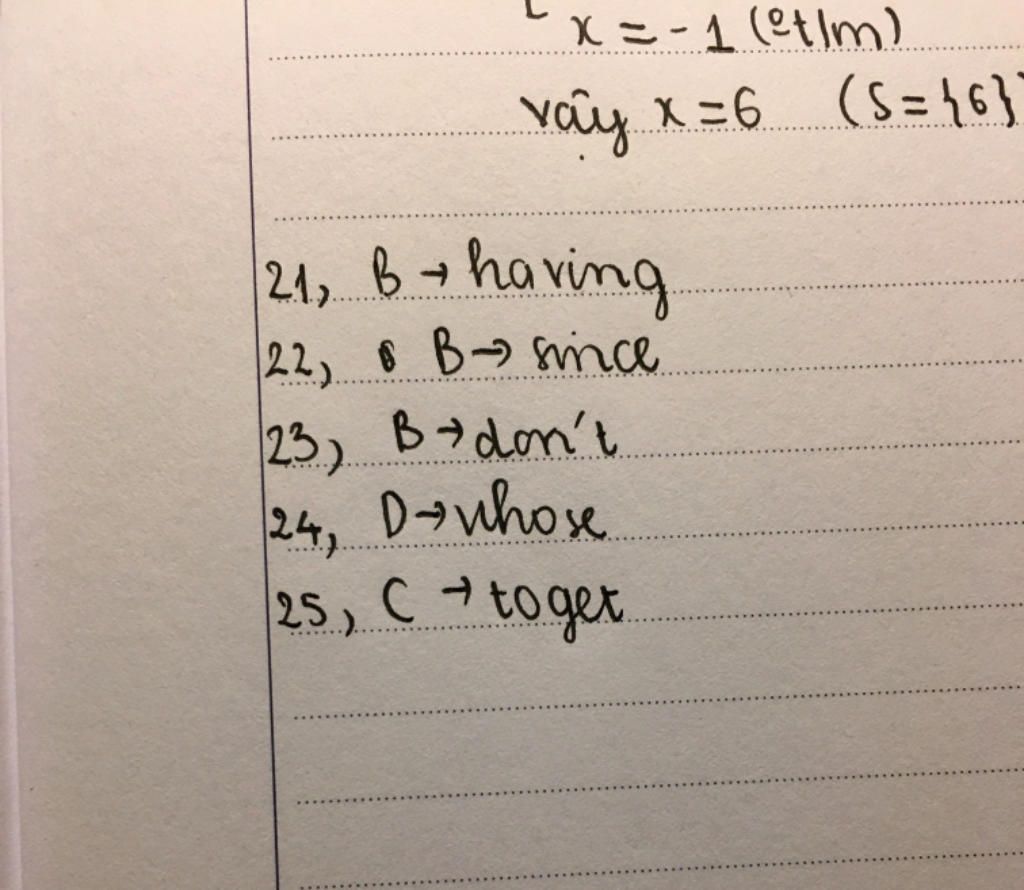 x = -1 (ºt/m)
vậy x = 6 (S = {6}
21, B → having
22, B → since
23, B → don't
24, D → whose
25, C → to get